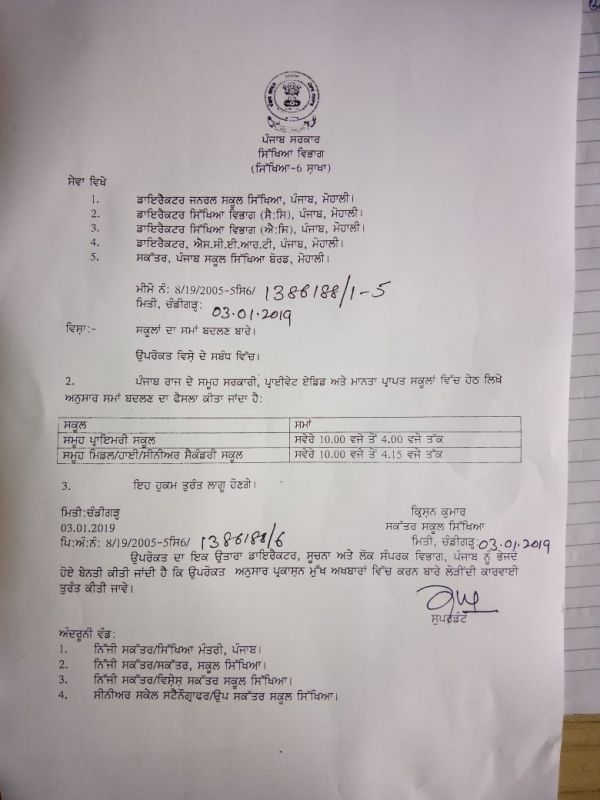 ਪੰਜਾਬ ਸਰਕਾਰ
ਸਿੱਖਿਆ ਵਿਭਾਗ
(ਸਿੱਖਿਆ-6 ਸ਼ਾਖਾ)
ਸੇਵਾ ਵਿਖੇ
1. ਡਾਇਰੈਕਟਰ ਜਨਰਲ ਸਕੂਲ ਸਿੱਖਿਆ, ਪੰਜਾਬ, ਮੋਹਾਲੀ।
2. ਡਾਇਰੈਕਟਰ ਸਿੱਖਿਆ ਵਿਭਾਗ (ਸੈ:ਸਿ), ਪੰਜਾਬ, ਮੋਹਾਲੀ।
3. ਡਾਇਰੈਕਟਰ ਸਿੱਖਿਆ ਵਿਭਾਗ (ਐ:ਸਿ), ਪੰਜਾਬ, ਮੋਹਾਲੀ।
4. ਡਾਇਰੈਕਟਰ, ਐਸ.ਸੀ.ਈ.ਆਰ.ਟੀ, ਪੰਜਾਬ, ਮੋਹਾਲੀ।
5. ਸਕੱਤਰ, ਪੰਜਾਬ ਸਕੂਲ ਸਿੱਖਿਆ ਬੋਰਡ, ਮੋਹਾਲੀ।
ਮੀਮੋ ਨੰ: 8/19/2005-5ਸਿ6/ 1386188/1-5
ਮਿਤੀ, ਚੰਡੀਗੜ੍ਹ: 03.01.2019
ਵਿਸ਼ਾ:- ਸਕੂਲਾਂ ਦਾ ਸਮਾਂ ਬਦਲਣ ਬਾਰੇ।
ਉਪਰੋਕਤ ਵਿਸ਼ੇ ਦੇ ਸਬੰਧ ਵਿੱਚ।
2. ਪੰਜਾਬ ਰਾਜ ਦੇ ਸਮੂਹ ਸਰਕਾਰੀ, ਪ੍ਰਾਈਵੇਟ ਏਡਿਡ ਅਤੇ ਮਾਨਤਾ ਪ੍ਰਾਪਤ ਸਕੂਲਾਂ ਵਿੱਚ ਹੇਠ ਲਿਖੇ
ਅਨੁਸਾਰ ਸਮਾਂ ਬਦਲਣ ਦਾ ਫੈਸਲਾ ਕੀਤਾ ਜਾਂਦਾ ਹੈ:
ਸਕੂਲ ਸਮਾਂ
ਸਮੂਹ ਪ੍ਰਾਇਮਰੀ ਸਕੂਲ ਸਵੇਰੇ 10.00 ਵਜੇ ਤੋਂ 4.00 ਵਜੇ ਤੱਕ
ਸਮੂਹ ਮਿਡਲ/ਹਾਈ/ਸੀਨੀਅਰ ਸੈਕੰਡਰੀ ਸਕੂਲ ਸਵੇਰੇ 10.00 ਵਜੇ ਤੋਂ 4.15 ਵਜੇ ਤੱਕ
3. ਇਹ ਹੁਕਮ ਤੁਰੰਤ ਲਾਗੂ ਹੋਣਗੇ।
ਮਿਤੀ:ਚੰਡੀਗੜ੍ਹ ਕ੍ਰਿਸ਼ਨ ਕੁਮਾਰ
03.01.2019 ਸਕੱਤਰ ਸਕੂਲ ਸਿੱਖਿਆ
ਪਿ:ਅੰ:ਨੰ: 8/19/2005-5ਸਿ6/ 1386188/6 ਮਿਤੀ, ਚੰਡੀਗੜ੍ਹ: 03.01.2019
ਉਪਰੋਕਤ ਦਾ ਇਕ ਉਤਾਰਾ ਡਾਇਰੈਕਟਰ, ਸੂਚਨਾ ਅਤੇ ਲੋਕ ਸੰਪਰਕ ਵਿਭਾਗ, ਪੰਜਾਬ ਨੂੰ ਭੇਜਦੇ
ਹੋਏ ਬੇਨਤੀ ਕੀਤੀ ਜਾਂਦੀ ਹੈ ਕਿ ਉਪਰੋਕਤ ਅਨੁਸਾਰ ਪ੍ਰਕਾਸ਼ਨ ਮੁੱਖ ਅਖਬਾਰਾਂ ਵਿੱਚ ਕਰਨ ਬਾਰੇ ਲੋੜੀਂਦੀ ਕਾਰਵਾਈ
ਤੁਰੰਤ ਕੀਤੀ ਜਾਵੇ।
ਸੁਪਰਡੰਟ
ਅੰਦਰੂਨੀ ਵੰਡ:
1. ਨਿੱਜੀ ਸਕੱਤਰ/ਸਿੱਖਿਆ ਮੰਤਰੀ, ਪੰਜਾਬ।
2. ਨਿੱਜੀ ਸਕੱਤਰ/ਸਕੱਤਰ, ਸਕੂਲ ਸਿੱਖਿਆ।
3. ਨਿੱਜੀ ਸਕੱਤਰ/ਵਿਸ਼ੇਸ਼ ਸਕੱਤਰ ਸਕੂਲ ਸਿੱਖਿਆ।
4. ਸੀਨੀਅਰ ਸਕੇਲ ਸਟੈਨੋਗ੍ਰਾਫਰ/ਉਪ ਸਕੱਤਰ ਸਕੂਲ ਸਿੱਖਿਆ।